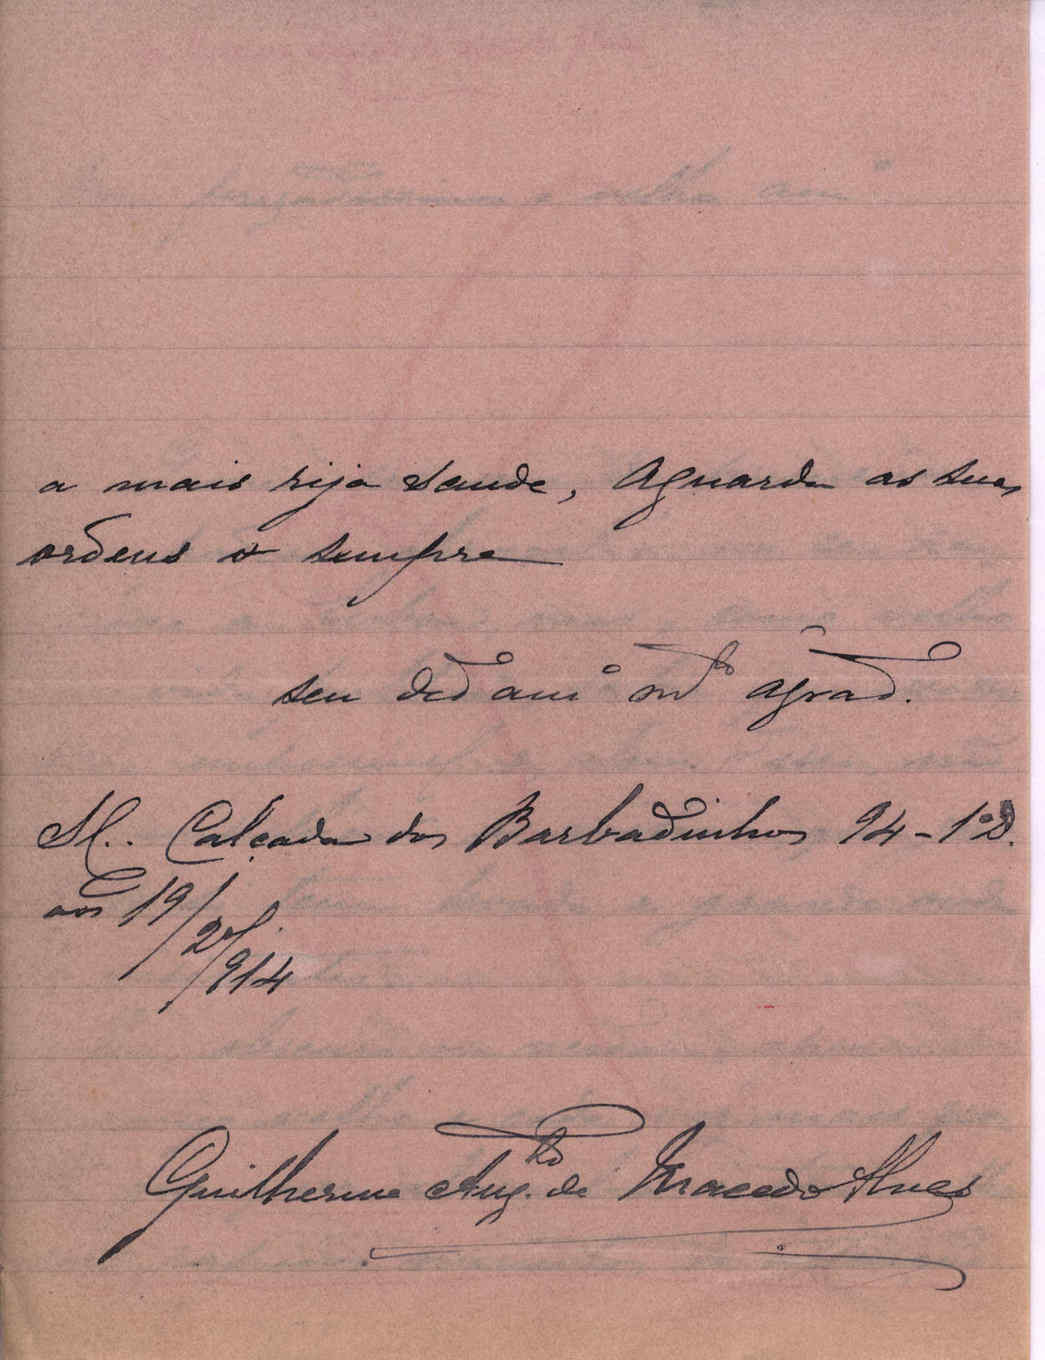 a mais rija saude, aguarda as suas
ordens o sempre
seu ded. am.º m.to agrad.
Calçada dos Barbadinhos, 94-1º D.
aos 19/2º/914
Guilherme Aug.to de Macedo Alves